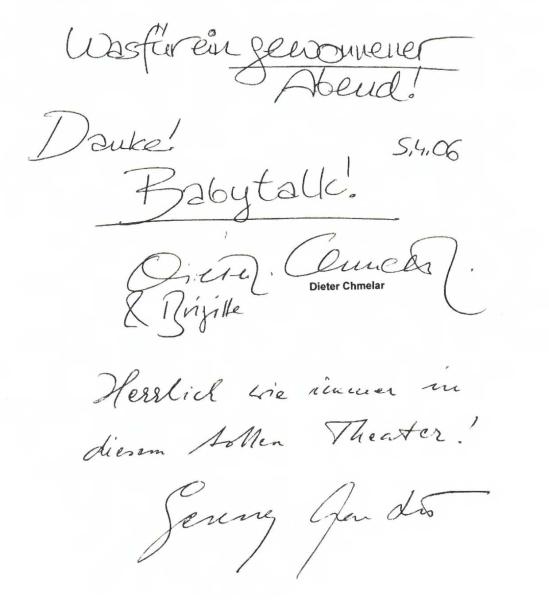 Was für ein gewonnener
Abend!
Danke! 5.4.06
Babytalk!
Dieter Chmelar
Dieter Chmelar
& Brigitte
Herrlich wie immer in
diesem tollen Theater!